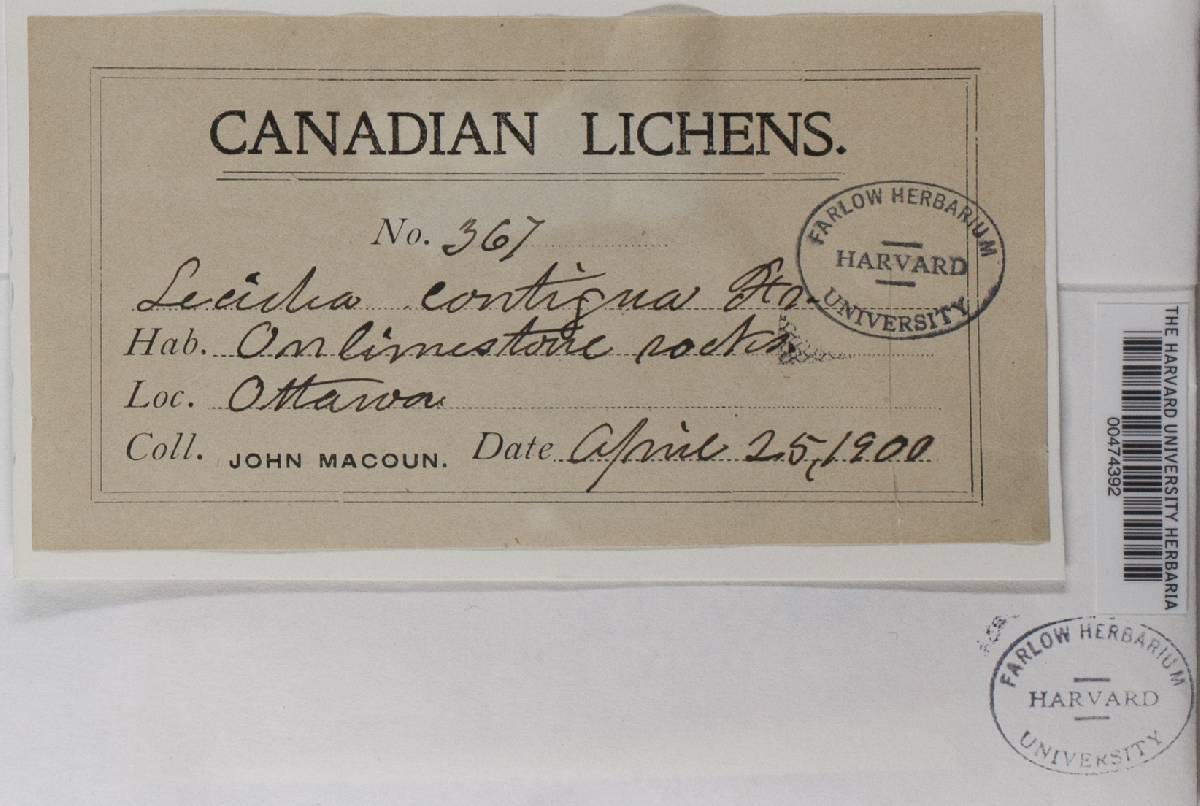 CANADIAN LICHENS.
No. 367
Lecidea contigua Fr.
Hab. On limestone rocks
Loc. Ottawa
Coll. JOHN MACOUN. Date April 25, 1900
FARLOW HERBARIUM
HARVARD
UNIVERSITY
THE HARVARD UNIVERSITY HERBARIA
00474392
FARLOW HERBARIUM
HARVARD
UNIVERSITY